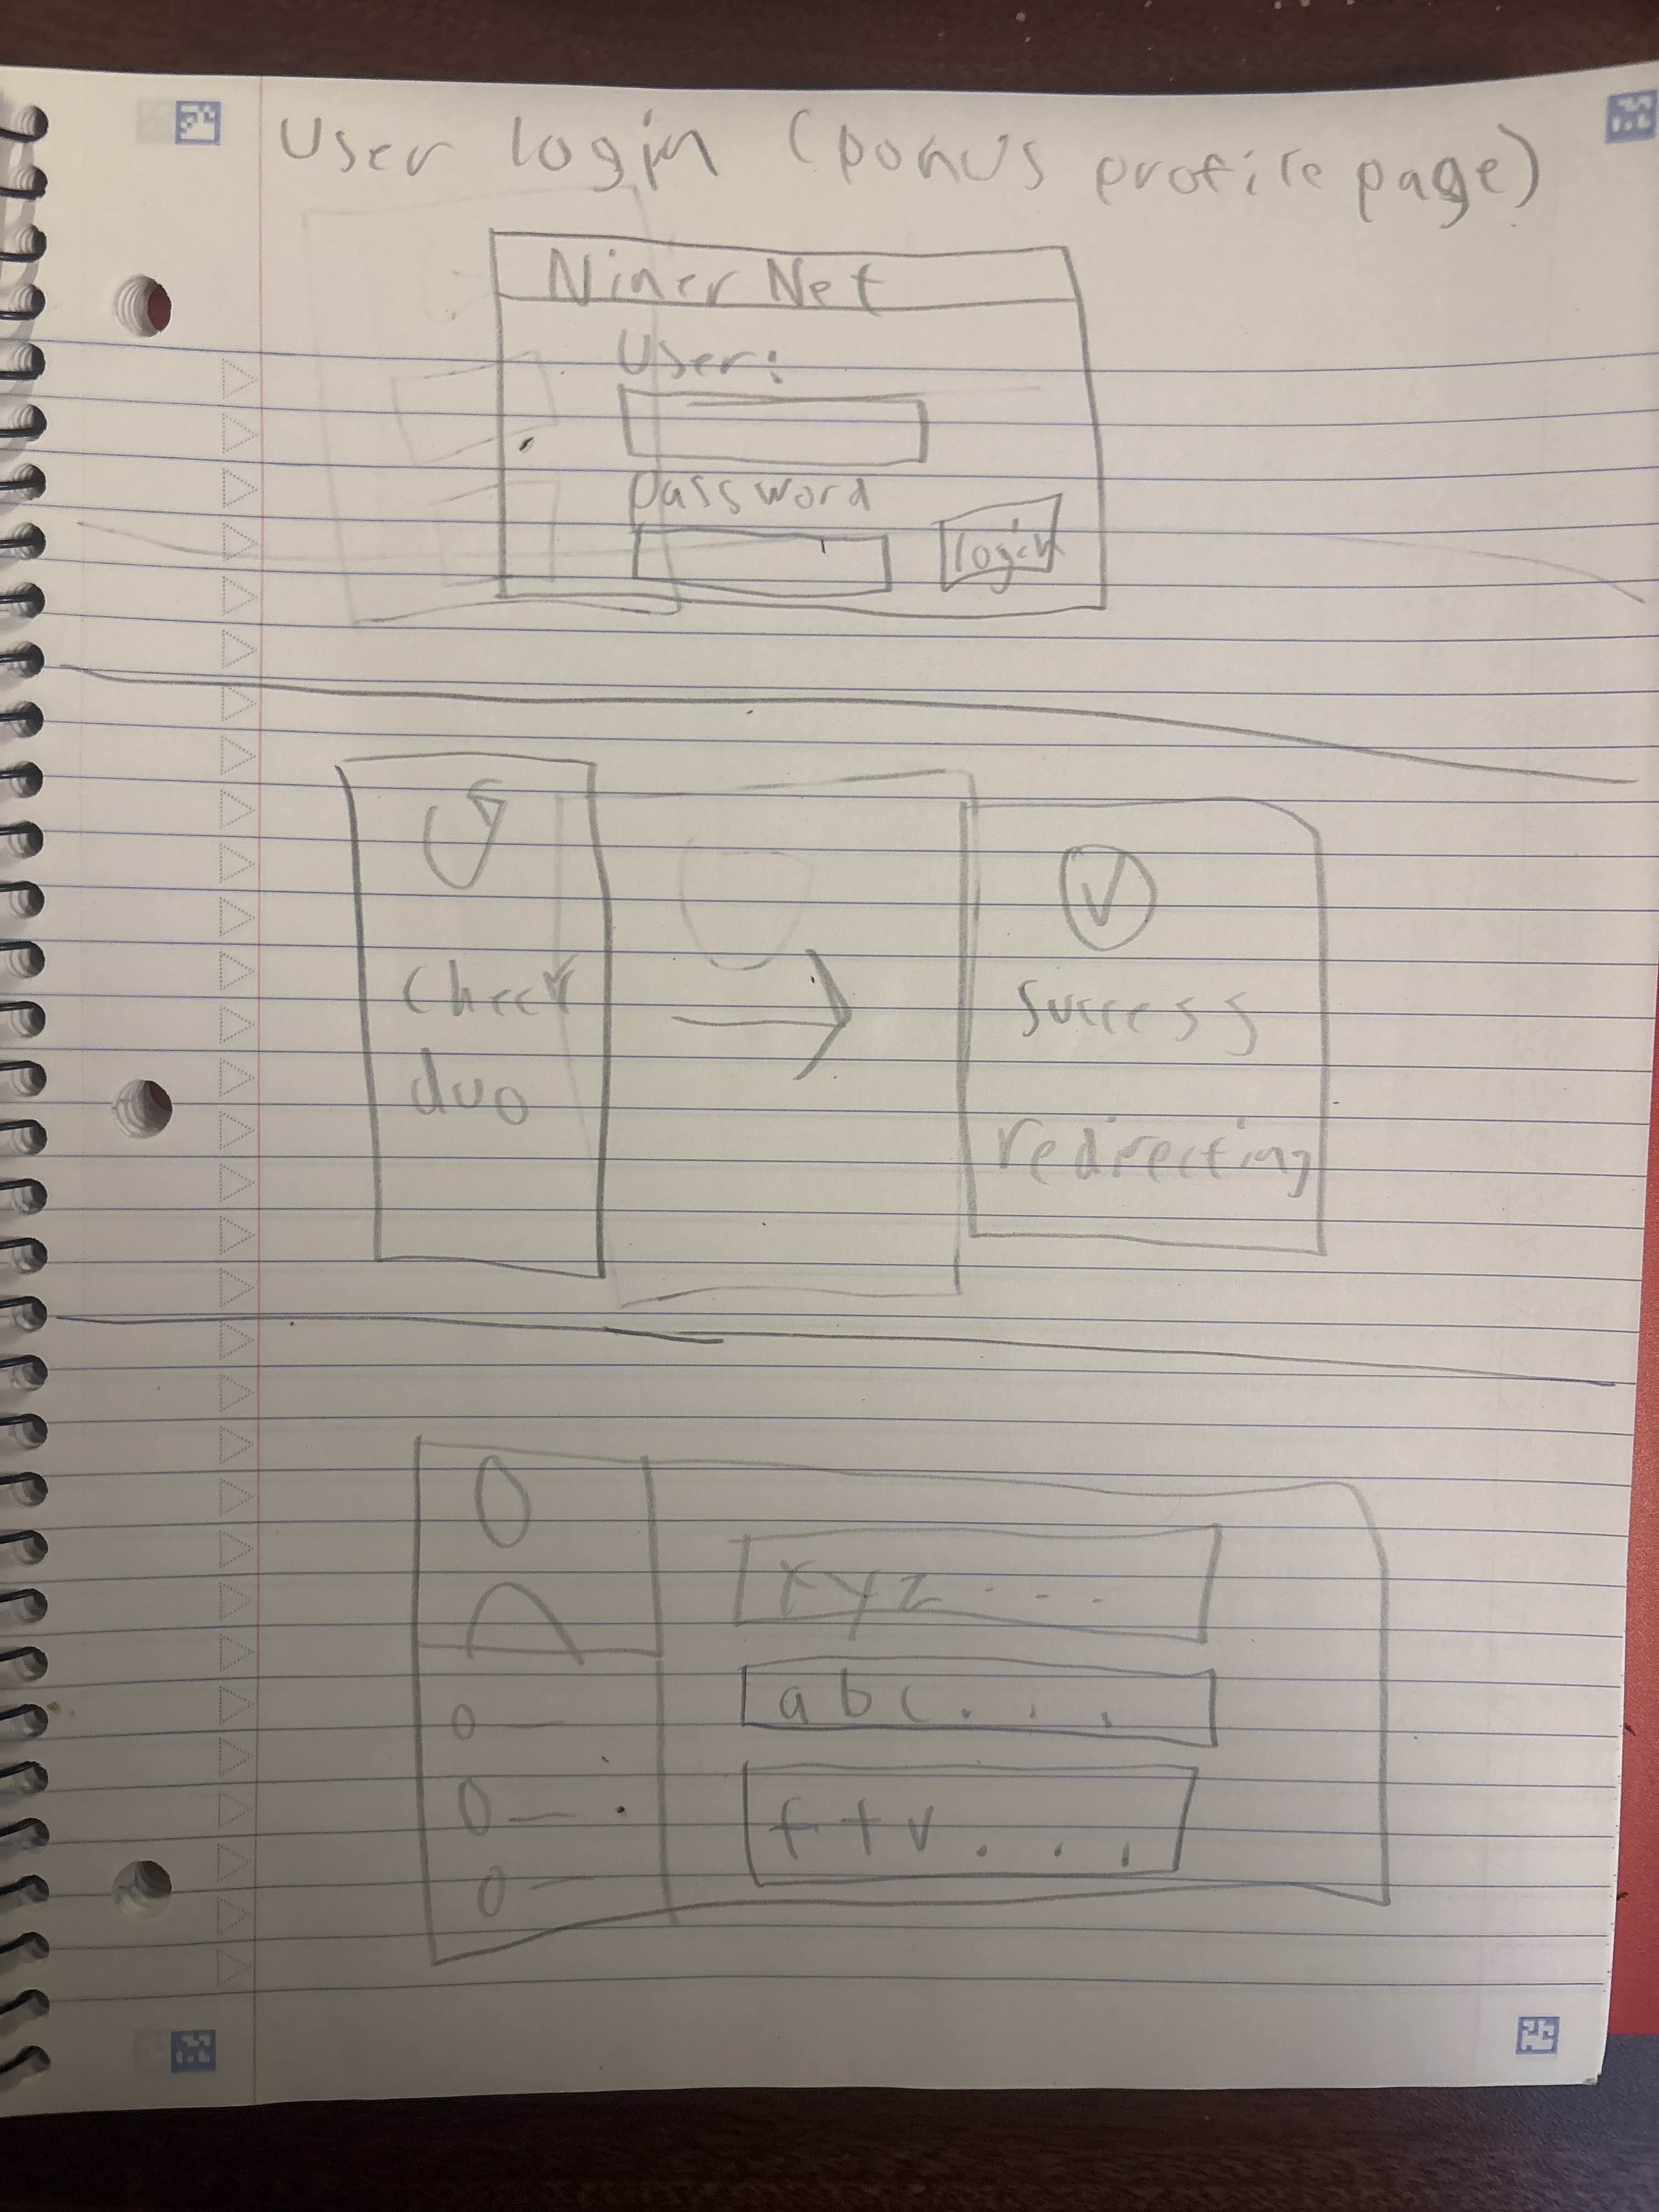 User login (bonus profile page)
Niner Net
User:
password
login
Check
duo
success
redirecting
xyz...
abc...
ftv...